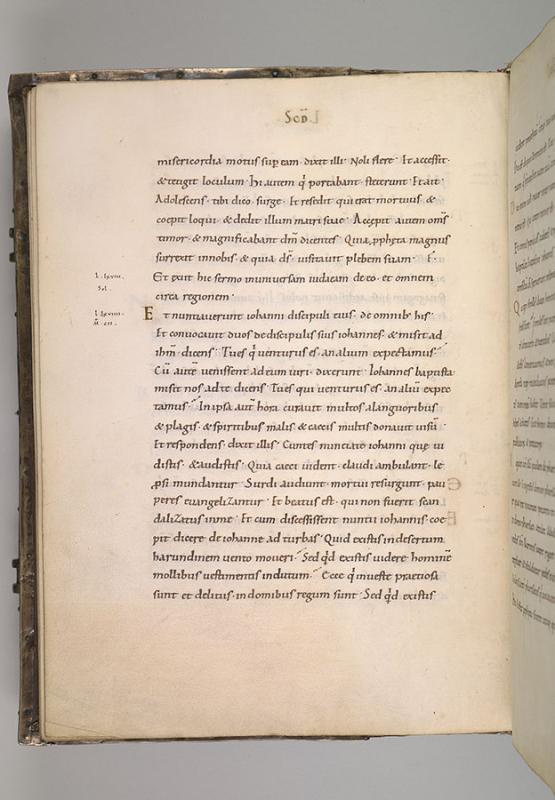 Scd̄
misericordia motus sup eam · dixit illi · Noli flere · Et accessit ·
& tetigit loculum · hi autem q̇ portabant · steterunt · Et ait ·
Adolescens · tibi dico surge · Et resedit qui erat mortuus · &
coepit loqui · & dedit illum matri suae · Accepit autem om̄s
timor · & magnificabant dm̄ dicentes · Quia ppheta magnus
surrexit innobis · & quia ds̄ visitavit plebem suam ·
Et exiit hic sermo inuniversam iudaeam de eo · et omnem
circa regionem ·
Et nuntiaverunt iohanni discipuli eius · de omnib· his ·
Et convocavit duos de discipulis suis iohannes · & misit ad
ihm̄ · dicens · Tu es q̇ venturus es · an alium expectamus
Cū autē venissent ad eum viri · dixerunt · Iohannes baptista
misit nos ad te dicens · Tu es qui venturus es · an aliū expec
tamus · In ipsa aut̄ hora curavit multos a languoribus
& plagis · & spiritibus malis · & caecis multis donavit visū ·
Et respondens · dixit illis · Euntes nuntiate iohanni quę vi
distis · & audistis · Quia caeci vident · claudi ambulant · le
psi mundantur · Surdi audiunt · mortui resurgunt · pau
peres evangelizantur · Et beatus est · qui non fuerit scan
dalizatus in me · Et cum discessissent nuntii iohannis · coe
pit dicere de iohanne ad turbas · Quid existis in desertum
harundinem vento moveri · Sed qd existis videre · hominē
mollibus vestimentis indutum · Ecce q̇ in veste praetiosa
sunt et delitiis · in domibus regum sunt · Sed qd existis